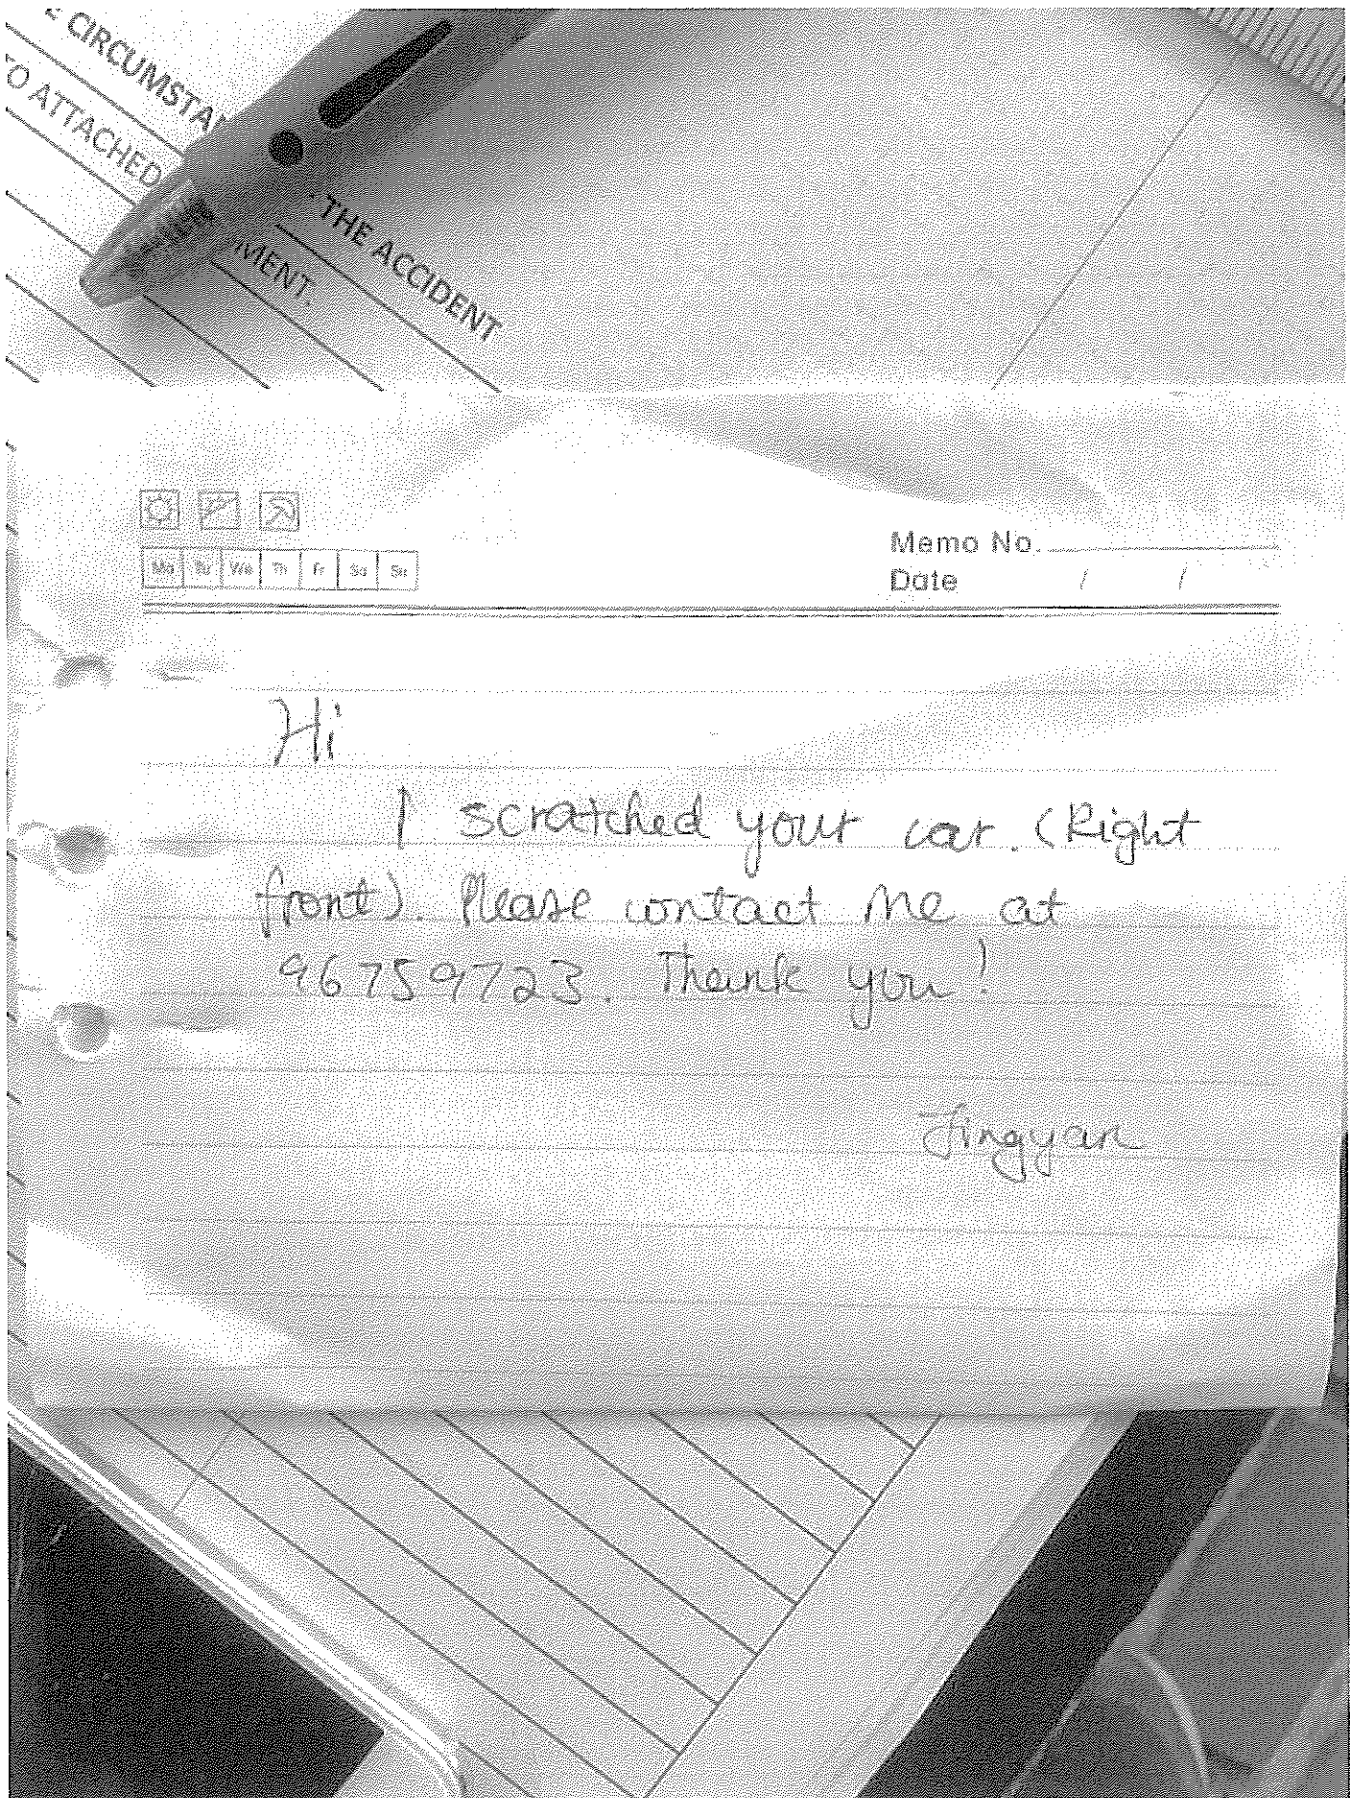 CIRCUMSTA
TO ATTACHED
THE ACCIDENT
MENT.
Memo No.
Mo Tu We Th Fr Sa Su
Date / /
Hi
I scratched your car. (Right
front). Please contact me at
96759723. Thank you!
Jingyan